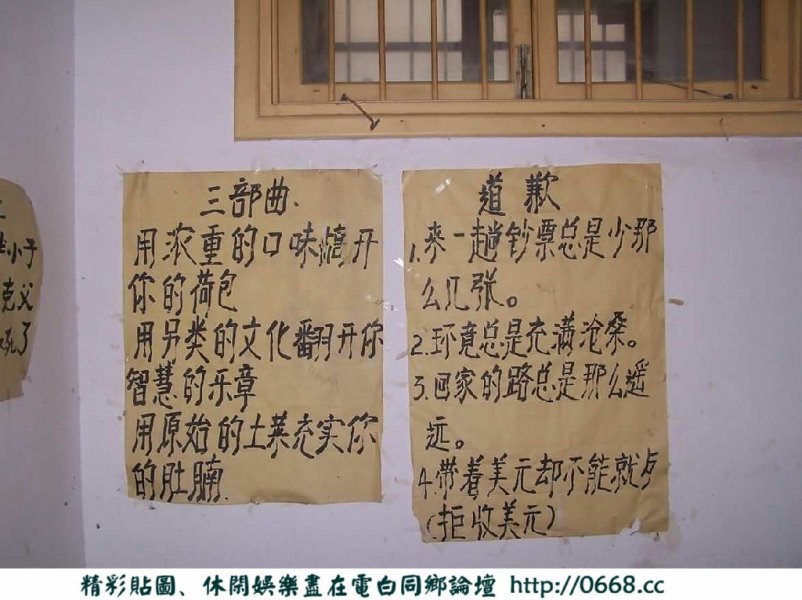 小子
克父
死了
三部曲.
用浓重的口味开
你的荷包
用另类的文化翻开你
智慧的乐章
用原始的土菜充实你
的肚腩.
道歉
1.来一趟钞票总是少那
么几张。
2.环竟总是充满沧桑。
3.回家的路总是那么遥
远。
4.带着美元却不能就歺
(拒收美元)
精彩貼圖、休閑娛樂盡在電白同鄉論壇 http://0668.cc